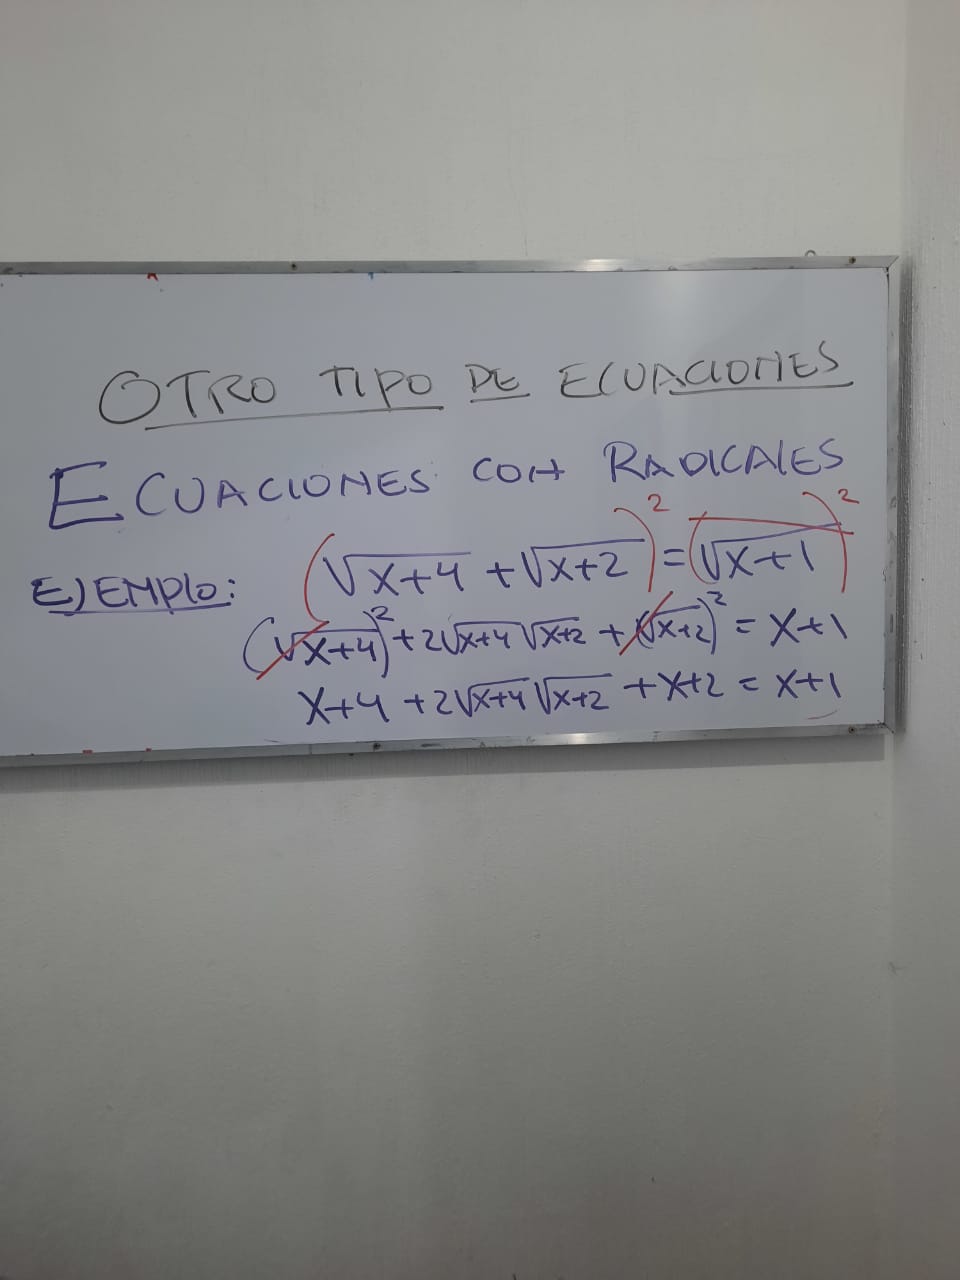 OTRO TIPO DE ECUACIONES
ECUACIONES CON RADICALES
EJEMPLO: (√x+4 + √x+2)² = (√x+1)²
(√x+4)² + 2√x+4 √x+2 + (√x+2)² = x+1
x+4 + 2√x+4 √x+2 + x+2 = x+1